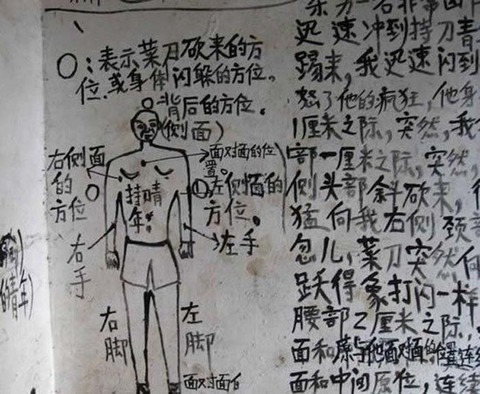 〇：表示菜刀砍来的方
位，或身体闪躲的方位。
背后的方位。
(侧面)
右侧面
的
方位
右
手
面对面的位
置
①左侧面的
方位。
左手
右
脚
左
脚
面对面
迅速冲到持刀青
踢来，我迅速闪到
怒了他的疯狂，他身
1厘米之际，突然，我
部一厘米之际，突然，
侧头部斜砍来，
猛向我右侧颈
忽儿，菜刀突然，何
跃得象打闪一样
腰部2厘米之际，
面和
面和中间原位，连续
的青年)